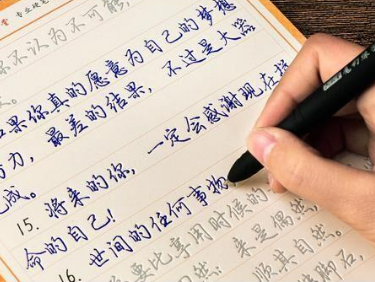 专业硬笔
不认为不可能,
果你真的愿意为自己的梦想
努力,最差的结果,不过是大器
成。
15. 将来的你,一定会感谢现在拼
命的自己!
16. 世间的任何事物,
要比享用时候的
来是偶然,
顺其自然。
脚石,